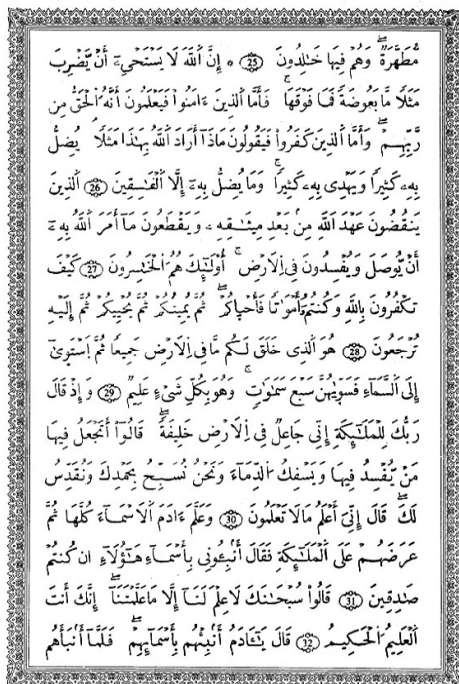 مُّطَهَّرَةٌ وَهُمْ فِيهَا خَـٰلِدُونَ ﴿25﴾ ۞ إِنَّ ٱللَّهَ لَا يَسْتَحْىِۦٓ أَنْ يَّضْرِبَ
مَثَلًا مَّا بَعُوضَةً فَمَا فَوْقَهَا ۚ فَأَمَّا ٱلَّذِينَ ءَامَنُوا فَيَعْلَمُونَ أَنَّهُ ٱلْحَقُّ مِن
رَّبِّهِمْ ۖ وَأَمَّا ٱلَّذِينَ كَفَرُوا فَيَقُولُونَ مَاذَآ أَرَادَ ٱللَّهُ بِهَـٰذَا مَثَلًا ۘ يُضِلُّ
بِهِۦ كَثِيرًا وَيَهْدِى بِهِۦ كَثِيرًا ۚ وَمَا يُضِلُّ بِهِۦٓ إِلَّا ٱلْفَـٰسِقِينَ ﴿26﴾ ٱلَّذِينَ
يَنقُضُونَ عَهْدَ ٱللَّهِ مِنۢ بَعْدِ مِيثَـٰقِهِۦ وَيَقْطَعُونَ مَآ أَمَرَ ٱللَّهُ بِهِۦٓ
أَنْ يُّوصَلَ وَيُفْسِدُونَ فِى ٱلْأَرْضِ ۚ أُو۟لَـٰٓئِكَ هُمُ ٱلْخَـٰسِرُونَ ﴿27﴾ كَيْفَ
تَكْفُرُونَ بِٱللَّهِ وَكُنتُمُ أَمْوَٰتًا فَأَحْيَـٰكُمْ ۖ ثُمَّ يُمِيتُكُمْ ثُمَّ يُحْيِيكُمْ ثُمَّ إِلَيْهِ
تُرْجَعُونَ ﴿28﴾ هُوَ ٱلَّذِى خَلَقَ لَكُم مَّا فِى ٱلْأَرْضِ جَمِيعًا ثُمَّ ٱسْتَوَىٰٓ
إِلَى ٱلسَّمَآءِ فَسَوَّيٰهُنَّ سَبْعَ سَمَـٰوَٰتٍ ۚ وَهُوَ بِكُلِّ شَىْءٍ عَلِيمٌ ﴿29﴾ وَإِذْ قَالَ
رَبُّكَ لِلْمَلَـٰٓئِكَةِ إِنِّى جَاعِلٌ فِى ٱلْأَرْضِ خَلِيفَةً ۖ قَالُوٓا أَتَجْعَلُ فِيهَا
مَنْ يُّفْسِدُ فِيهَا وَيَسْفِكُ ٱلدِّمَآءَ وَنَحْنُ نُسَبِّحُ بِحَمْدِكَ وَنُقَدِّسُ
لَكَ ۖ قَالَ إِنِّىَ أَعْلَمُ مَا لَا تَعْلَمُونَ ﴿30﴾ وَعَلَّمَ ءَادَمَ ٱلْأَسْمَآءَ كُلَّهَا ثُمَّ
عَرَضَهُمْ عَلَى ٱلْمَلَـٰٓئِكَةِ فَقَالَ أَنۢبِـُٔونِى بِأَسْمَآءِ هَـٰٓؤُلَآءِ ان كُنتُمْ
صَـٰدِقِينَ ﴿31﴾ قَالُوا سُبْحَـٰنَكَ لَا عِلْمَ لَنَآ إِلَّا مَا عَلَّمْتَنَآ ۖ إِنَّكَ أَنتَ
ٱلْعَلِيمُ ٱلْحَكِيمُ ﴿32﴾ قَالَ يَـٰٓـَٔادَمُ أَنۢبِئْهُم بِأَسْمَآئِهِمْ ۖ فَلَمَّآ أَنۢبَأَهُم